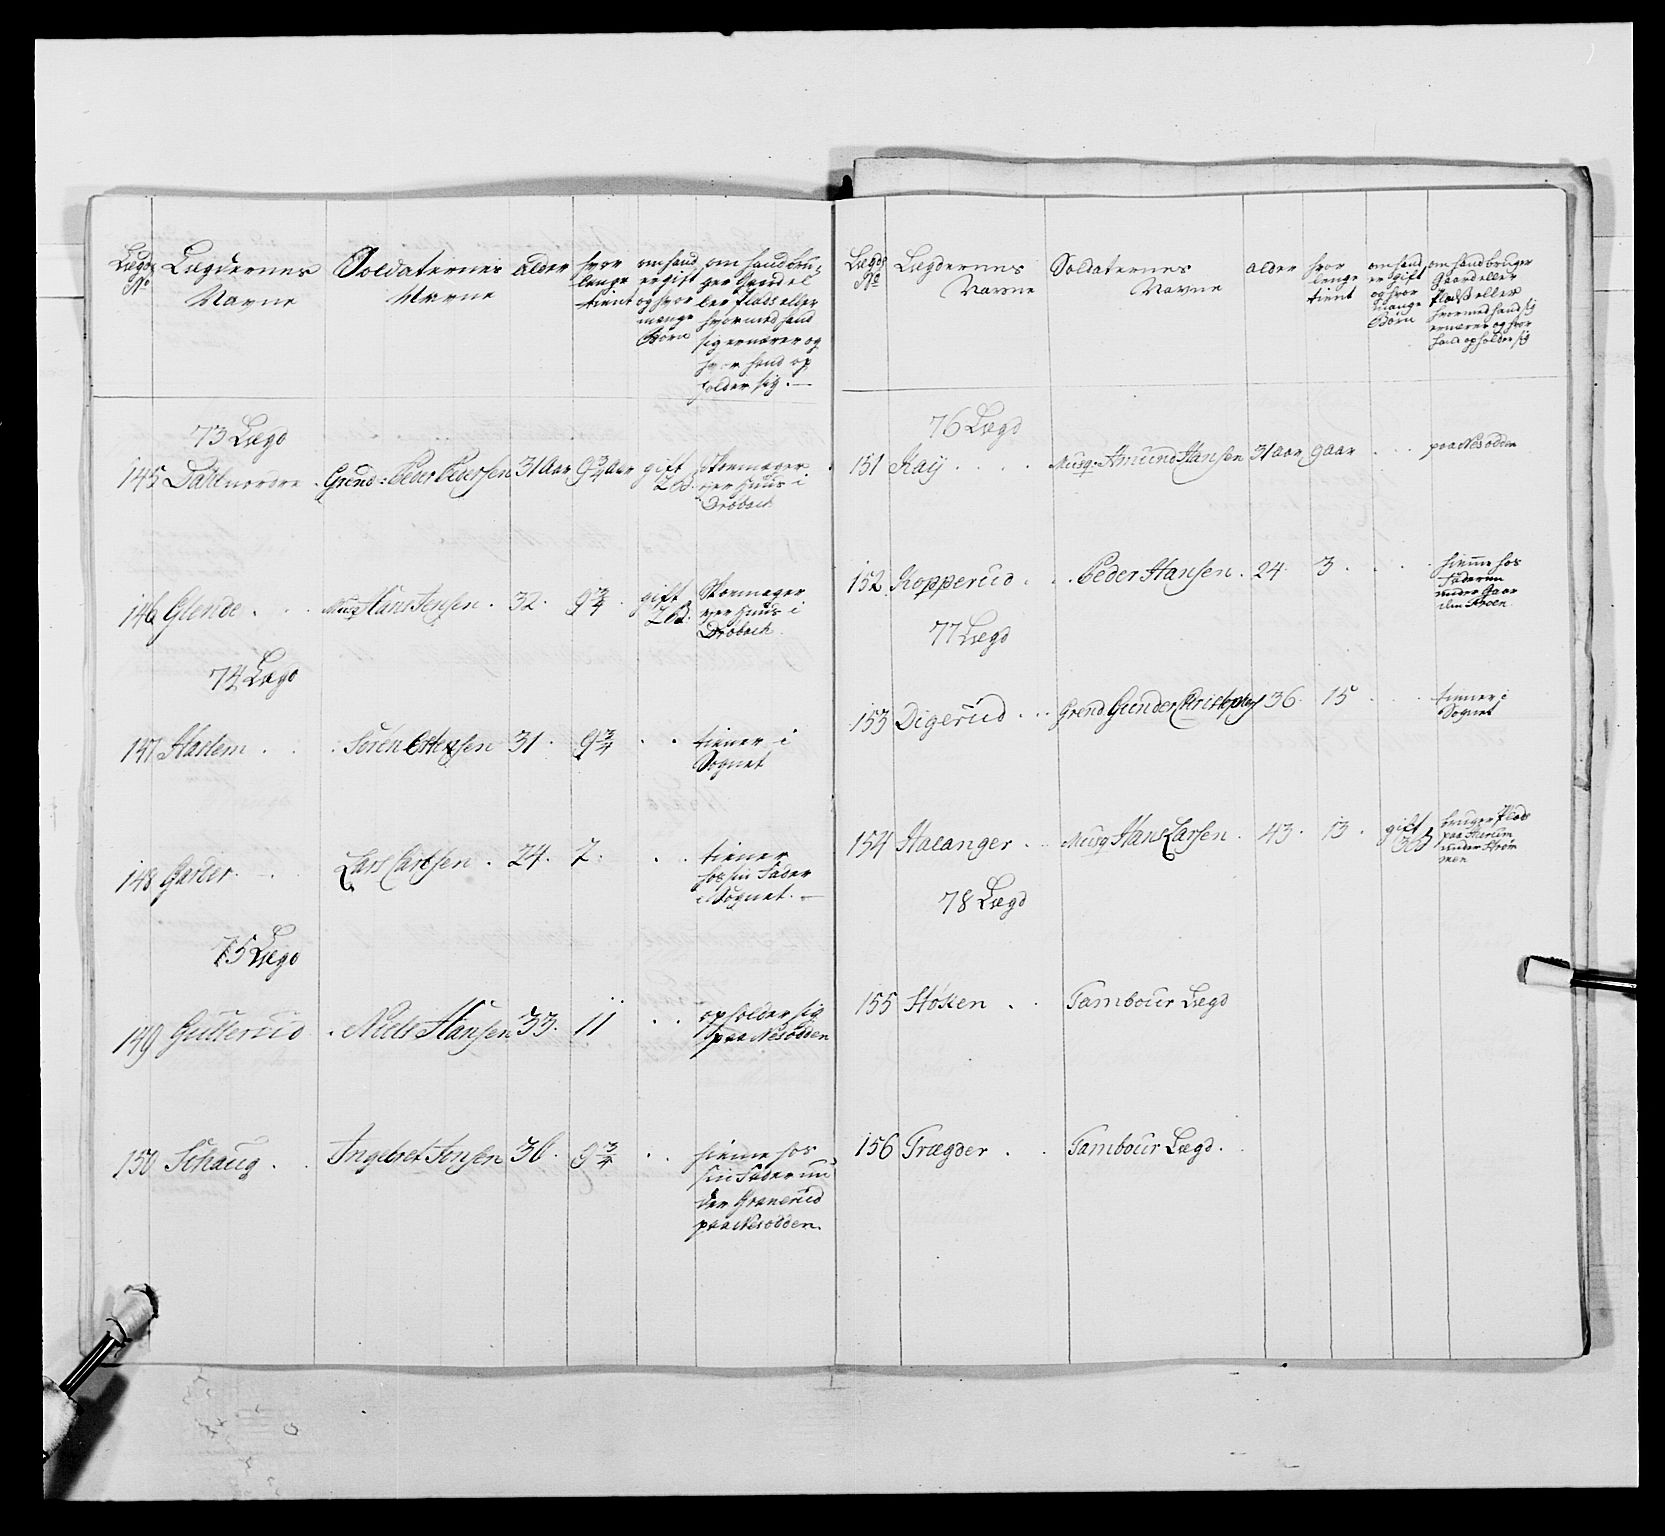 Lægds No Lægdernes Navne Soldaternes Navne alder hvor lenge tient om hand er gift og hvor mange Børn om hand bruger Gaard eller Plads eller hvormed hand sig ernærer og hvor hand opholder sig.
73 Lægd
145 Dahl nordre . Grend: Peder Pedersen 31 Aar 9 3/4 Aar gift 2 B. Skoemager
ver Huus i
Drøbach
146 Glende . . . Musq Hans Jensen . 32 . 9 3/4 . gift 2 B. Skoemager
ver Huus i
Drøbach.
74 Lægd
147 Harlem . . . Søren 31 . 9 3/4 . . tiener i
Sognet
148 Garder . . . Lars Larsen . 24 . 7 . . . tiener
hos sin Fader
i Sognet.
75 Lægd
149 Gullerud . Niels Hansen 33 . 11 . . opholder sig
paa Nesodden
150 Schaug . . Ingebret Jensen 36 . 9 3/4 . . hieme hos
sin Fader un
der Granerud
paa Nesodden.
Lægds No Lægdernes Navne Soldaternes Navne alder hvor lenge tient om hand er gift og hvor mange Børn om hand bruger Gaard eller Plads eller hvormed hand sig ernærer og hvor hand opholder sig
76 Lægd
151 Kay . . . . Musq: Amund Hansen 31 aar 9 aar . . . paa Nesodden
152 Kopperud . . . Peder Hansen . 24 . 3 . . . hieme hos
Faderen
under Gaar
den
77 Lægd
153 Digerud . . . Grend Gunder 36 . 15 . . . tiener i
Sognet
154 Halanger . . Musq Hans Larsen . 43 . 13 . gift 3 B bruger Plads
paa
under Strøm
men
78 Lægd
155 . . Tambour Lægd
156 Trægder . . Tambour Lægd .